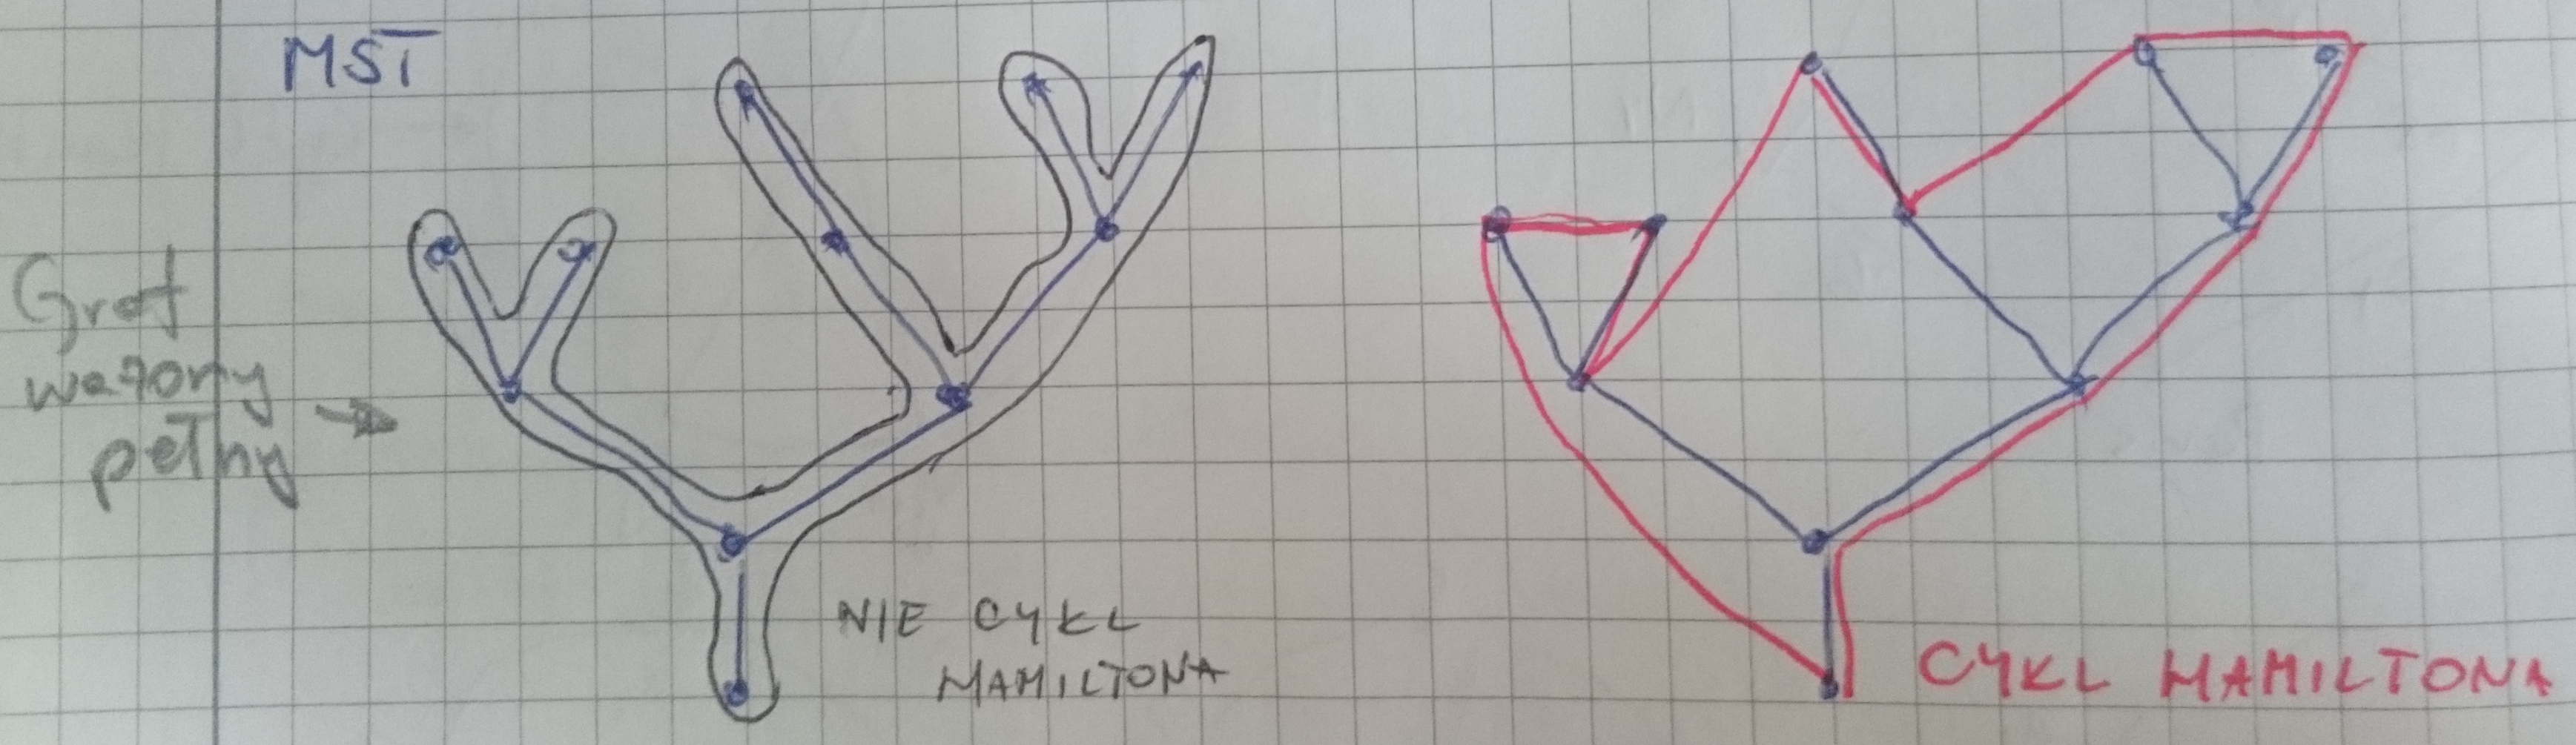 MST
Graf
ważony
pełny
NIE CYKL
HAMILTONA
CYKL HAMILTONA